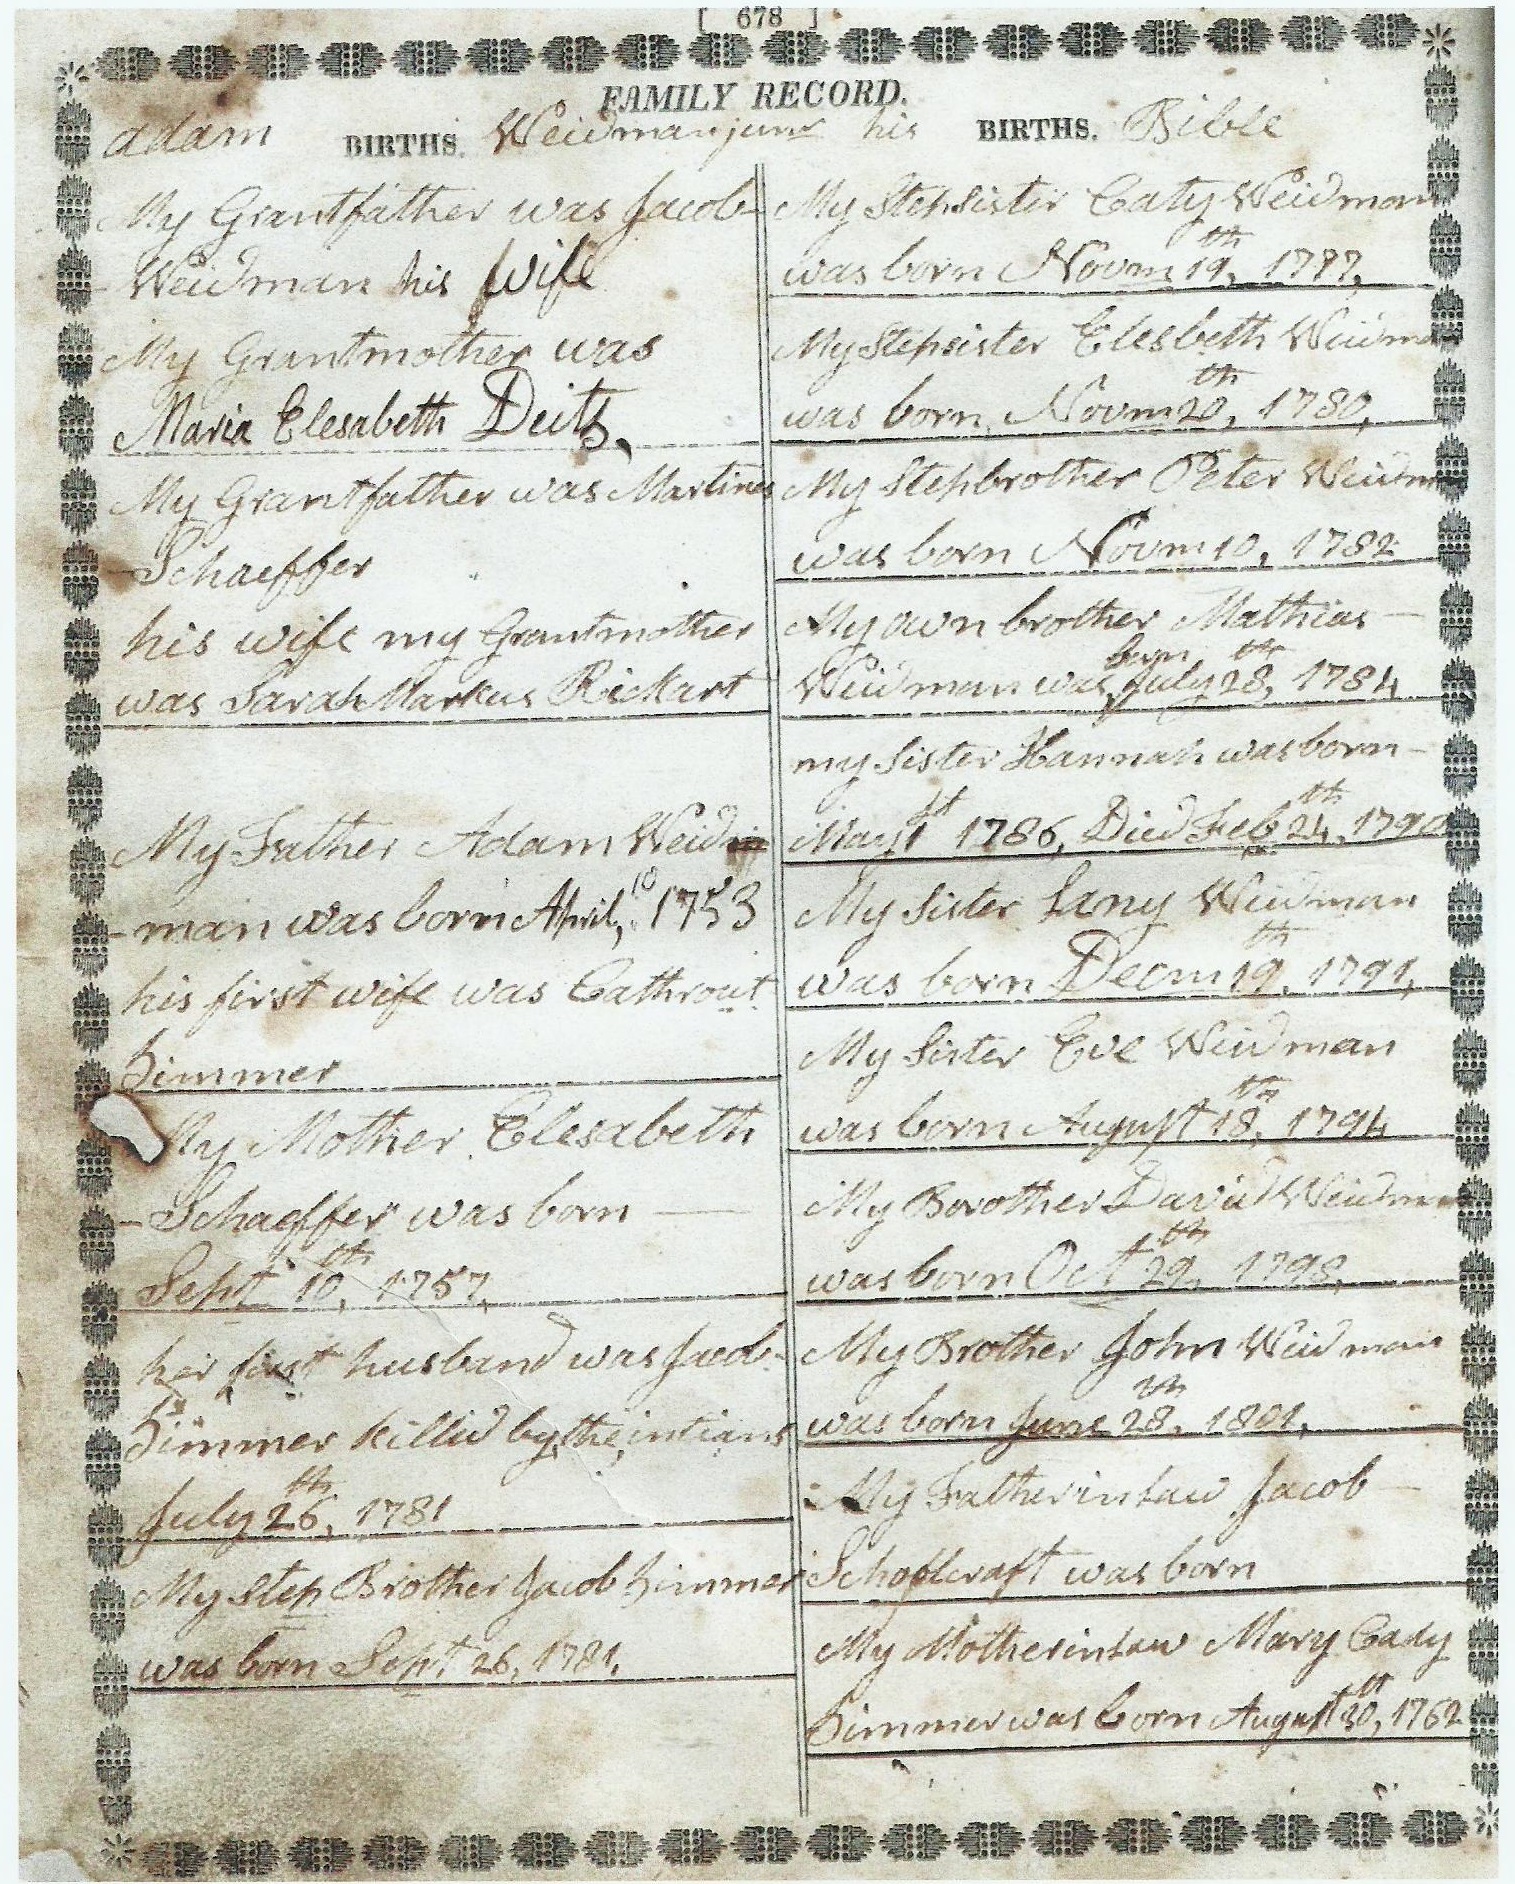 [ 678 ]
FAMILY RECORD.
adam BIRTHS. Weidman junr his BIRTHS. Bible
My Grantfather was Jacob
- Weidman his wife
My Grantmother was
Maria Elesabeth Deits,
My Grantfather was Martines
- Schaeffer
his wife my Grantmother
was Sarah Markus Rickart
My Father Adam Weid
- man was born April, 10 1753
his first wife was Cathrout
Zimmer
My Mother Elesabeth
- Schaeffer was born —
Sept 10th, 1757,
her first husband was Jacob
Zimmer killid by the intians
July 26th, 1781
My Step Brother Jacob Zimmer
was born Sept 26, 1781,
My Stepsister Caty Weidman
was born Novm 19th, 1777,
My Stepsister Elesbeth Weidma
was born Novm 20th, 1780,
My Stepbrother Peter Weidm
was born Novm 10, 1782
My own brother Mathias —
Weidman was born July 28th, 1784
my Sister Hannah was born -
May 1st 1786, Died Feb 24th, 1790
My Sister Lany Weidman
was born Decm 19th, 1791,
My Sister Eve Weidman
was born August 18th, 1794
My Borother David Weidm
was born Oct 29th, 1798,
My Brother John Weidman
was born June 28th, 1801,
My Fatherinlaw Jacob —
Schoolcraft was born
My Motherinlaw Mary Cady
Zimmer was born August 30th, 1762